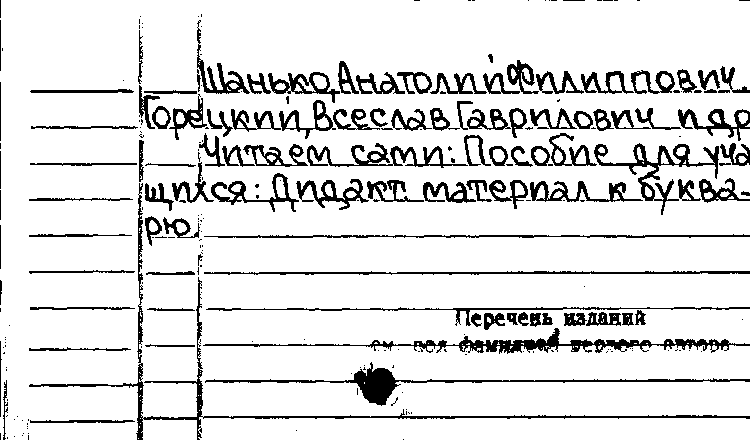 Шанько, Анатолий Филиппович.
Горецкий, Всеслав Гаврилович и др
Читаем сами: Пособие для уча
щихся: Дидакт. материал к буква-
рю.
Перечень изданий
см. под фамилией первого автора